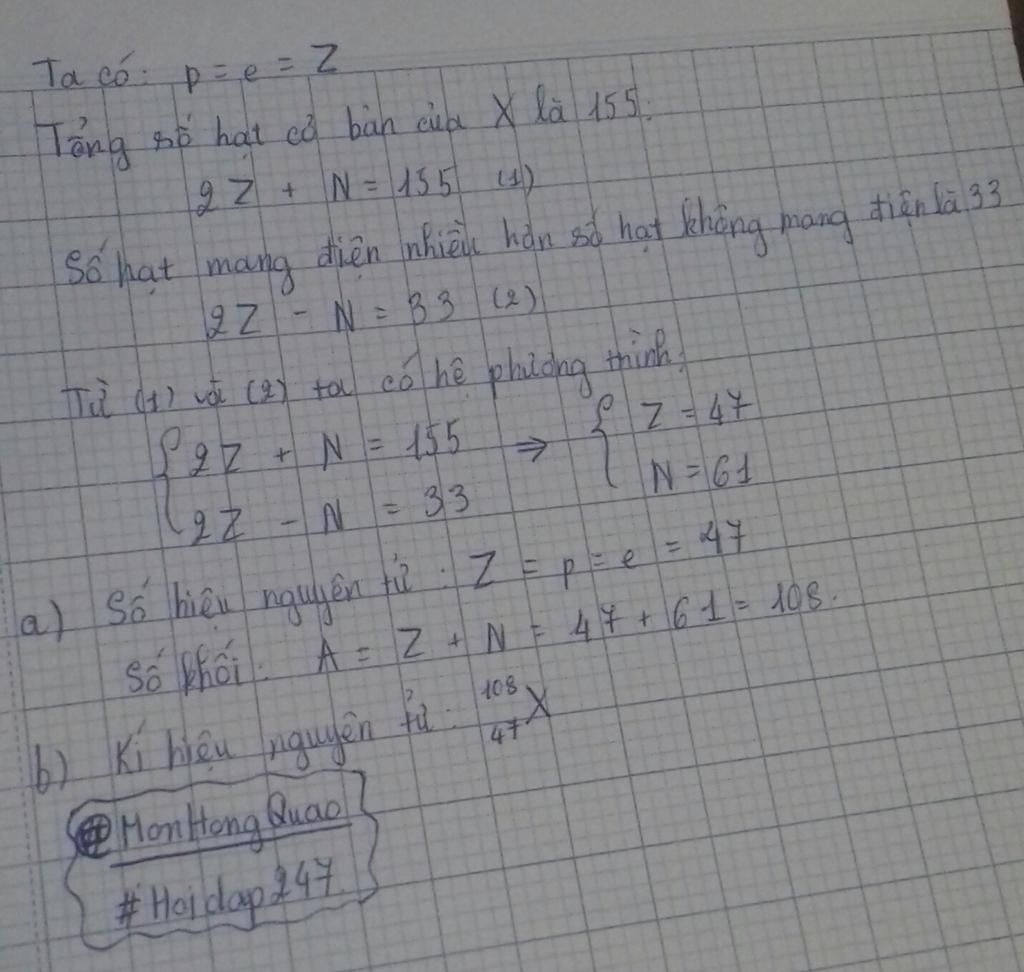 Ta có: p = e = Z
Tổng số hạt cơ bản của X là 155.
2Z + N = 155 (1)
Số hạt mang điện nhiều hơn số hạt không mang điện là 33
2Z - N = 33 (2)
Từ (1) và (2) ta có hệ phương trình.
{ 2Z + N = 155 ⇒ { Z = 47
2Z - N = 33 N = 61
a) Số hiệu nguyên tử : Z = p = e = 47
Số khối : A = Z + N = 47 + 61 = 108.
b) Kí hiệu nguyên tử : ¹⁰⁸₄₇X
# MonHongQuao
# Hoidap247